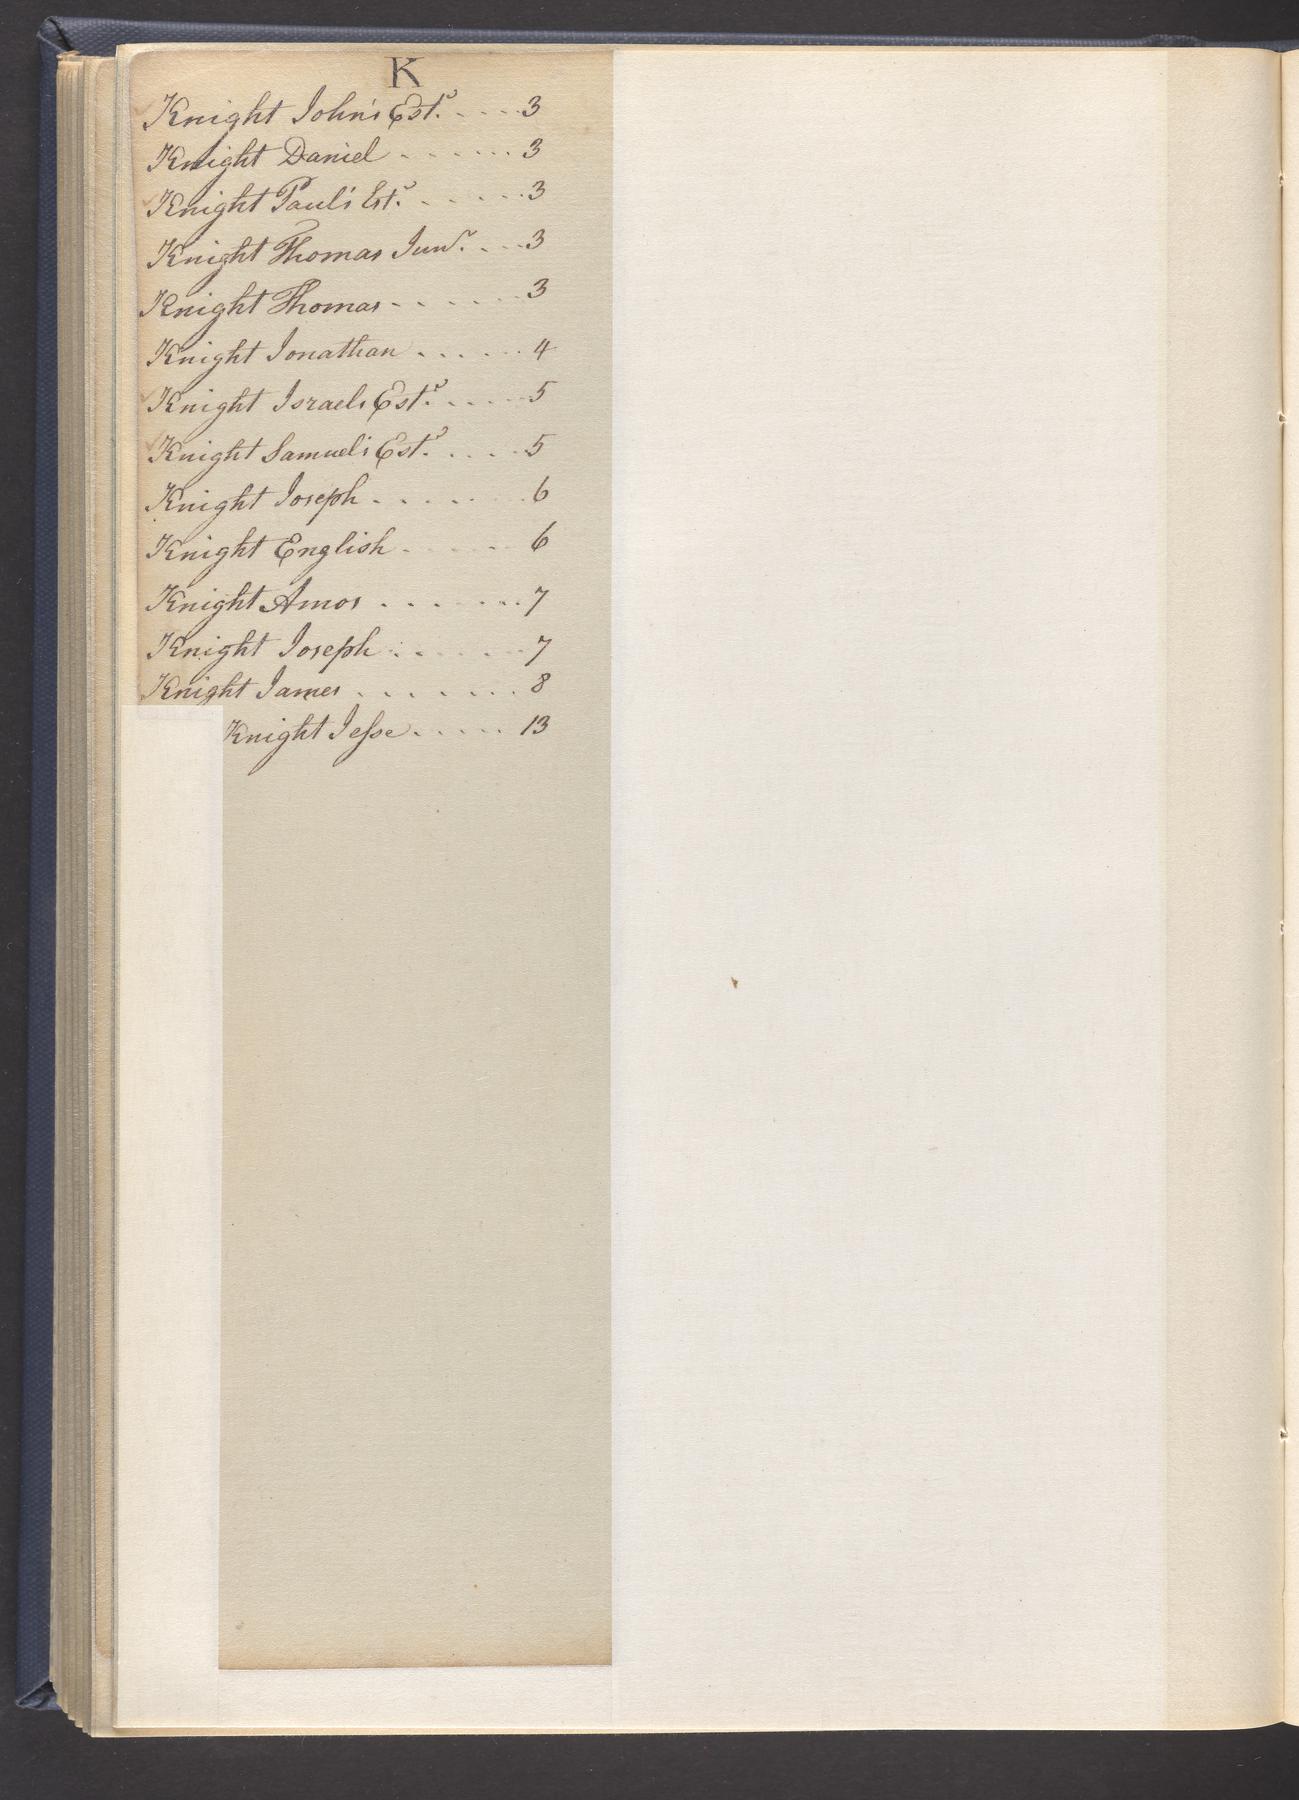 K
Knight John's Est.ͤ - - - - 3
Knight Daniel - - - - - - 3
Knight Paul's Est.ͤ - - - - - 3
Knight Thomas Junʳ. - - - 3
Knight Thomas - - - - - - 3
Knight Jonathan . . . . . . 4
Knight Israels Est.ͤ - - - - - 5
Knight Samuel's Est.ͤ . . . . 5
Knight Joseph - - - - - - 6
Knight English - - - - - 6
Knight Amos . . . . . . . 7
Knight Joseph - - - - - - 7
Knight James . . . . . . . 8
Knight Jeſse . . . . . 13